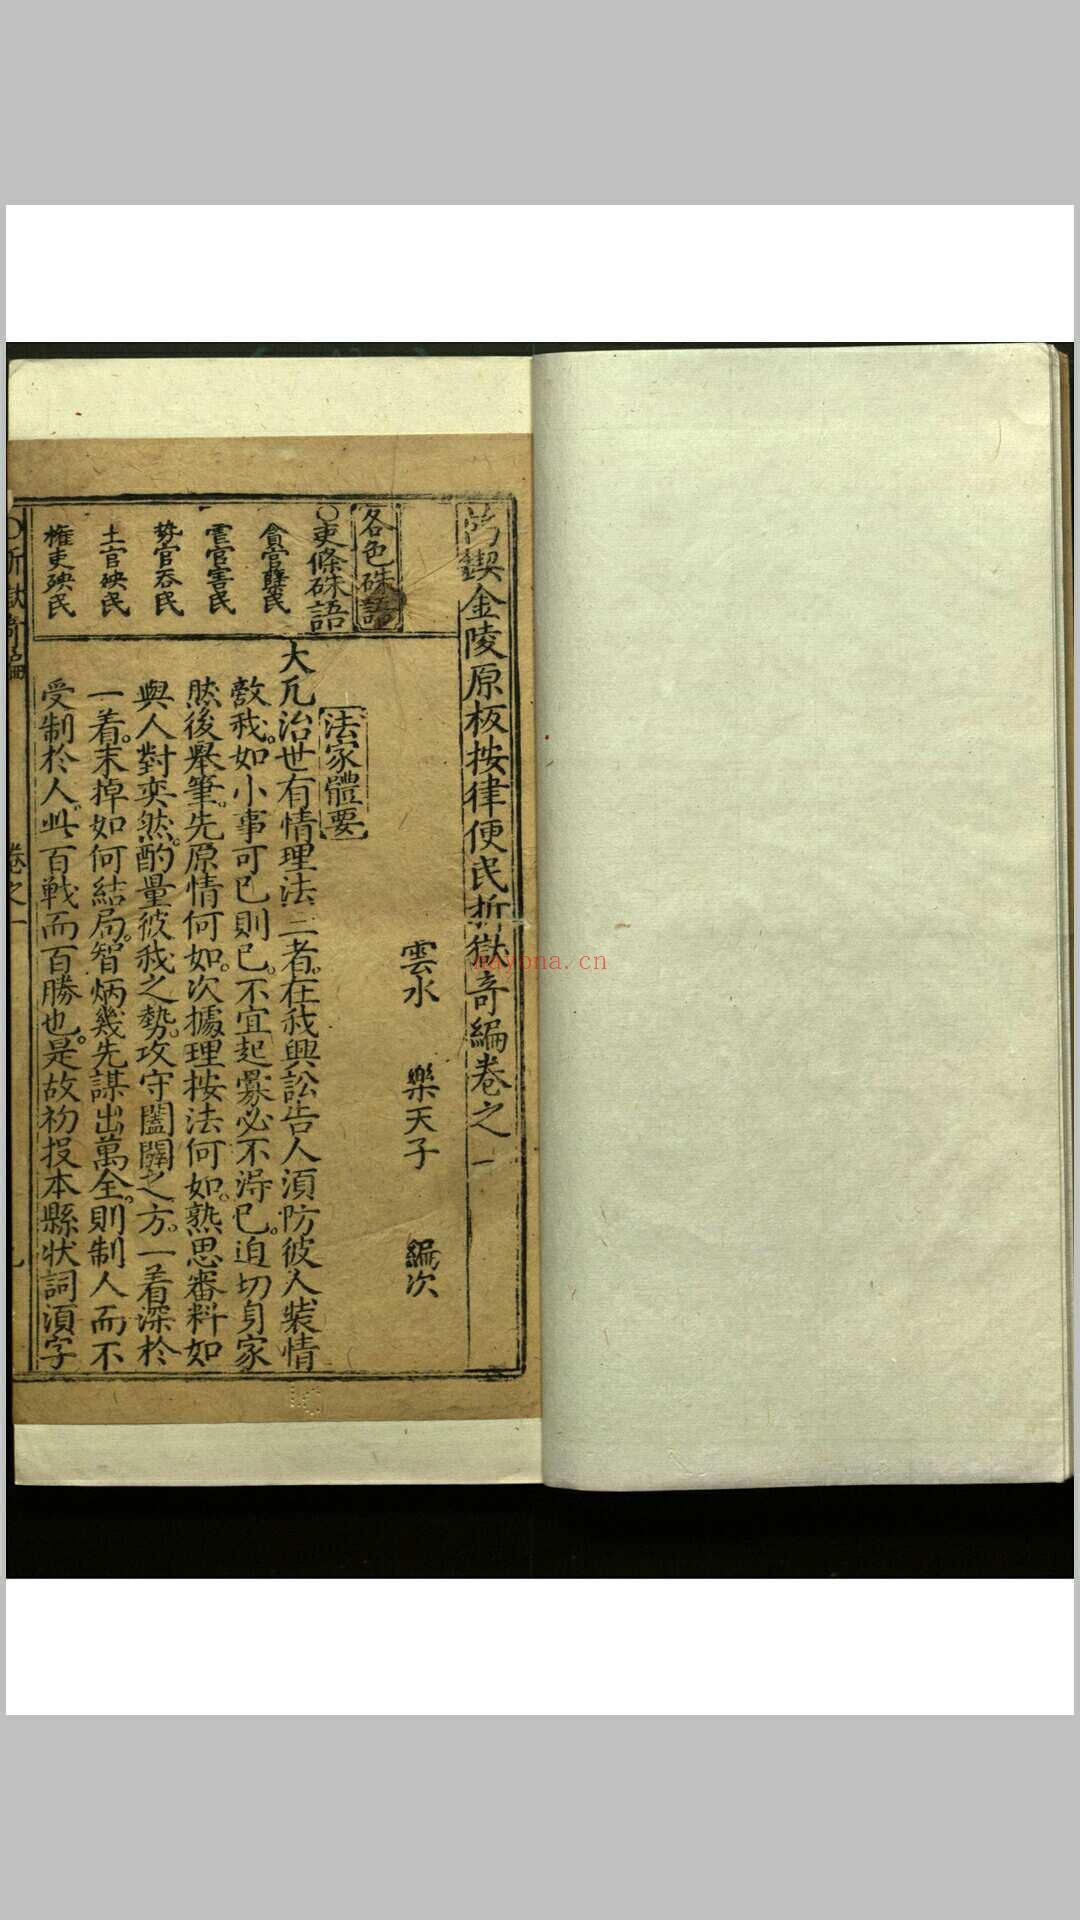 鍥金陵原板按律便民折獄奇編卷之一
雲水 樂天子 編次
各色硃語
○吏條硃語
貪官孽民
虐官害民
勢官吞民
土官殃民
權吏殃民
法家體要
大凡治世有情理法三者。在我興訟告人須防彼人裝情
敵我。如小事可已則已。不宜起釁必不得已。迫切身家
然後舉筆。先原情何如。次據理按法何如。熟思審料如
與人對奕然。酌量彼我之勢。攻守闔闢之方。一着深於
一着。末掉如何結局。智炳幾先謀出萬全。則制人而不
受制於人。此百戰而百勝也。是故初投本縣狀詞須字
○折獄奇編 卷之一
nayona.cn